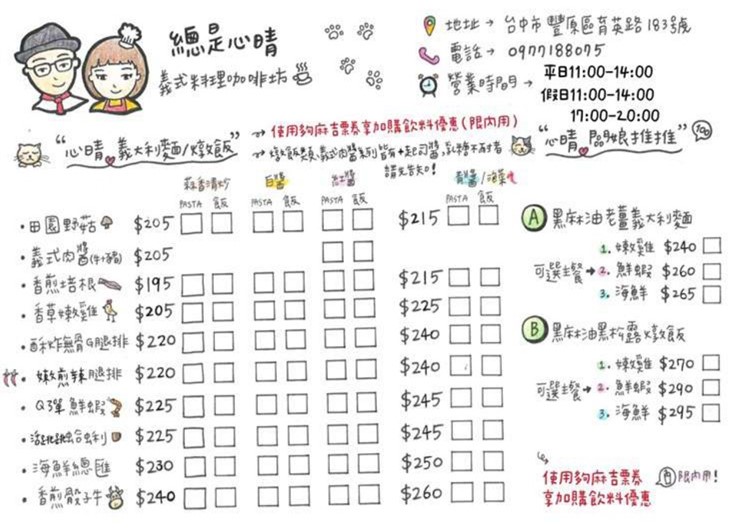 總是心晴
義式料理咖啡坊
地址→ 台中市豐原區育英路183號
電話→ 0977188075
營業時間→ 平日11:00-14:00
假日11:00-14:00
17:00-20:00
→使用夠麻吉票券享加購飲料優惠(限內用)
"心晴 義大利麵/燉飯"
→燉飯類、義式肉醬系列皆有起司醬,乳糖不耐者
請先告知!
"心晴 闆娘推推"
蒜香清炒 白醬 紅醬 青醬/
PASTA 飯 PASTA 飯 PASTA 飯 PASTA 飯
・田園野菇 $205 $215
・義式肉醬(牛+豬) $205
・香煎培根 $195 $215
・香草嫩雞 $205 $225
・酥炸無骨G腿排 $220 $240
・嫩煎辣腿排 $220 $240
・Q彈鮮蝦 $225 $245
・蛤蜊 $225 $245
・海鮮總匯 $230 $250
・香煎骰子牛 $240 $260
A 黑麻油老薑義大利麵
可選主餐→
1. 嫩雞 $240
2. 鮮蝦 $260
3. 海鮮 $265
B 黑麻油黑松露燉飯
可選主餐→
1. 嫩雞 $270
2. 鮮蝦 $290
3. 海鮮 $295
使用夠麻吉票券
享加購飲料優惠
限內用!